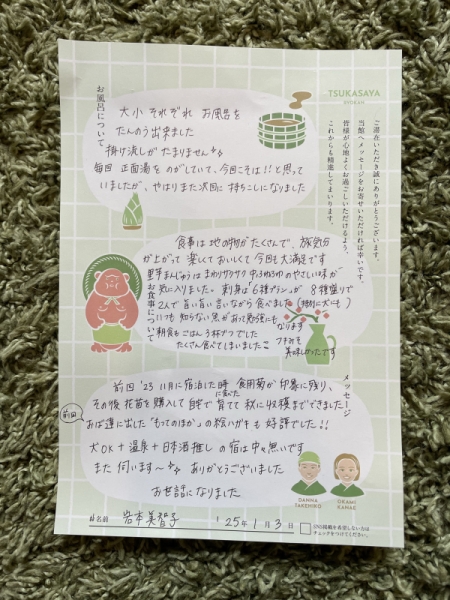 TSUKASAYA
RYOKAN
ご滞在いただき誠にありがとうございます。
当館へメッセージをお寄せいただければ幸いです。
皆様が心地よくお過ごしいただけるよう、
これからも精進してまいります。
お風呂について
大小それぞれ お風呂を
たんのう出来ました
掛け流しがたまりません
毎回 正面湯をのがしていて、今回こそは!!と思って
いましたが、やはりまた次回に持ちこしになりました
お食事について
食事は地の物がたくさんで、旅気分
が上がって 楽しくておいしくて今回も大満足です
里芋まんじゅうはまわりサクサク 中ふわふわのやさしい味が
気に入りました。刺身は"6種プラン"が 8種盛りで
2人で旨い旨い言いながら食べました(特別に犬にも)
いつも知らない魚があって勉強にも
なります
朝食もごはん3杯ずつでした
フキみそ
たくさん食べてしまいました
美味しかったです
メッセージ
前回 '23 11月に宿泊した時に食べた 食用菊が印象に残り、
その後 花苗を購入して自宅で育てて 秋に収穫までできました
前回
おば達に出した「もってのほか」の絵ハガキも好評でした!!
犬OK + 温泉 + 日本酒推し の宿は中々無いです
また伺います〜 ありがとうございました
お世話になりました
DANNA
TAKEHIRO
OKAMI
KANAE
お名前 岩本美智子 '25年1月3日
SNS掲載を希望しない方は
チェックをつけてください。